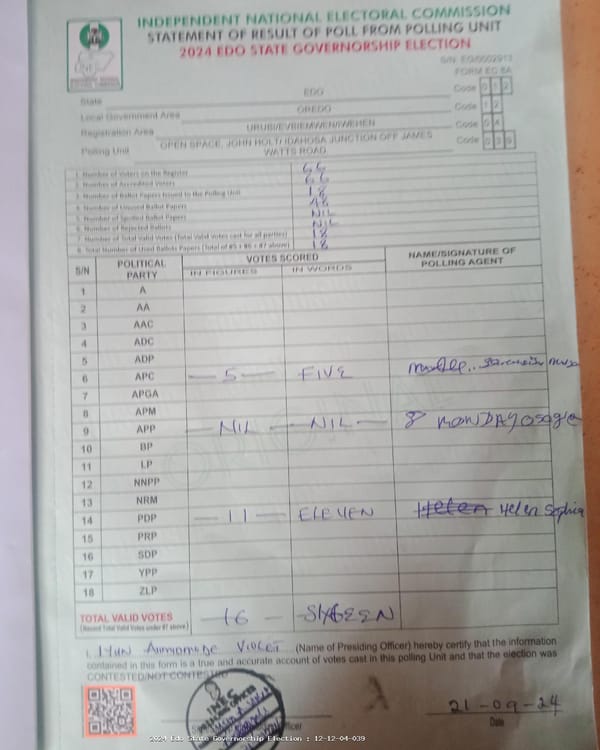 INDEPENDENT NATIONAL ELECTORAL COMMISSION
STATEMENT OF RESULT OF POLL FROM POLLING UNIT
2024 EDO STATE GOVERNORSHIP ELECTION
S/N: EG/0002913
FORM EC 8A
State EDO Code 0 1 2
Local Government Area OREDO Code 1 2
Registration Area URUBI/EVBIEMWEN/IWEHEN Code 0 4
Polling Unit OPEN SPACE, JOHN HOLT/ IDAHOSA JUNCTION OFF JAMES WATTS ROAD Code 0 3 9
1. Number of Voters on the Register 66
2. Number of Accredited Voters 66
3. Number of Ballot Papers Issued to the Polling Unit 18
4. Number of Unused Ballot Papers 48
5. Number of Spoilled Ballot Papers NIL
6. Number of Rejected Ballots NIL
7. Number of Total Valid Votes (Total Valid Votes cast for all parties) 18
8. Total Number of Used Ballots Papers (Total of #5 + #6 + #7 above) 18
S/N POLITICAL PARTY VOTES SCORED NAME/SIGNATURE OF POLLING AGENT
IN FIGURES IN WORDS
1 A
2 AA
3 AAC
4 ADC
5 ADP
6 APC 5 FIVE
7 APGA
8 APM
9 APP NIL NIL MONDAY Osagie
10 BP
11 LP
12 NNPP
13 NRM
14 PDP 11 ELEVEN Helen Helen Sophia
15 PRP
16 SDP
17 YPP
18 ZLP
TOTAL VALID VOTES 16 SIXTEEN
(Record Total Valid Votes under #7 above)
I, VIOLET (Name of Presiding Officer) hereby certify that the information
contained in this form is a true and accurate account of votes cast in this polling Unit and that the election was
CONTESTED/NOT CONTESTED
INEC
21-09-24
Date
2024 Edo State Governorship Election : 12-12-04-039